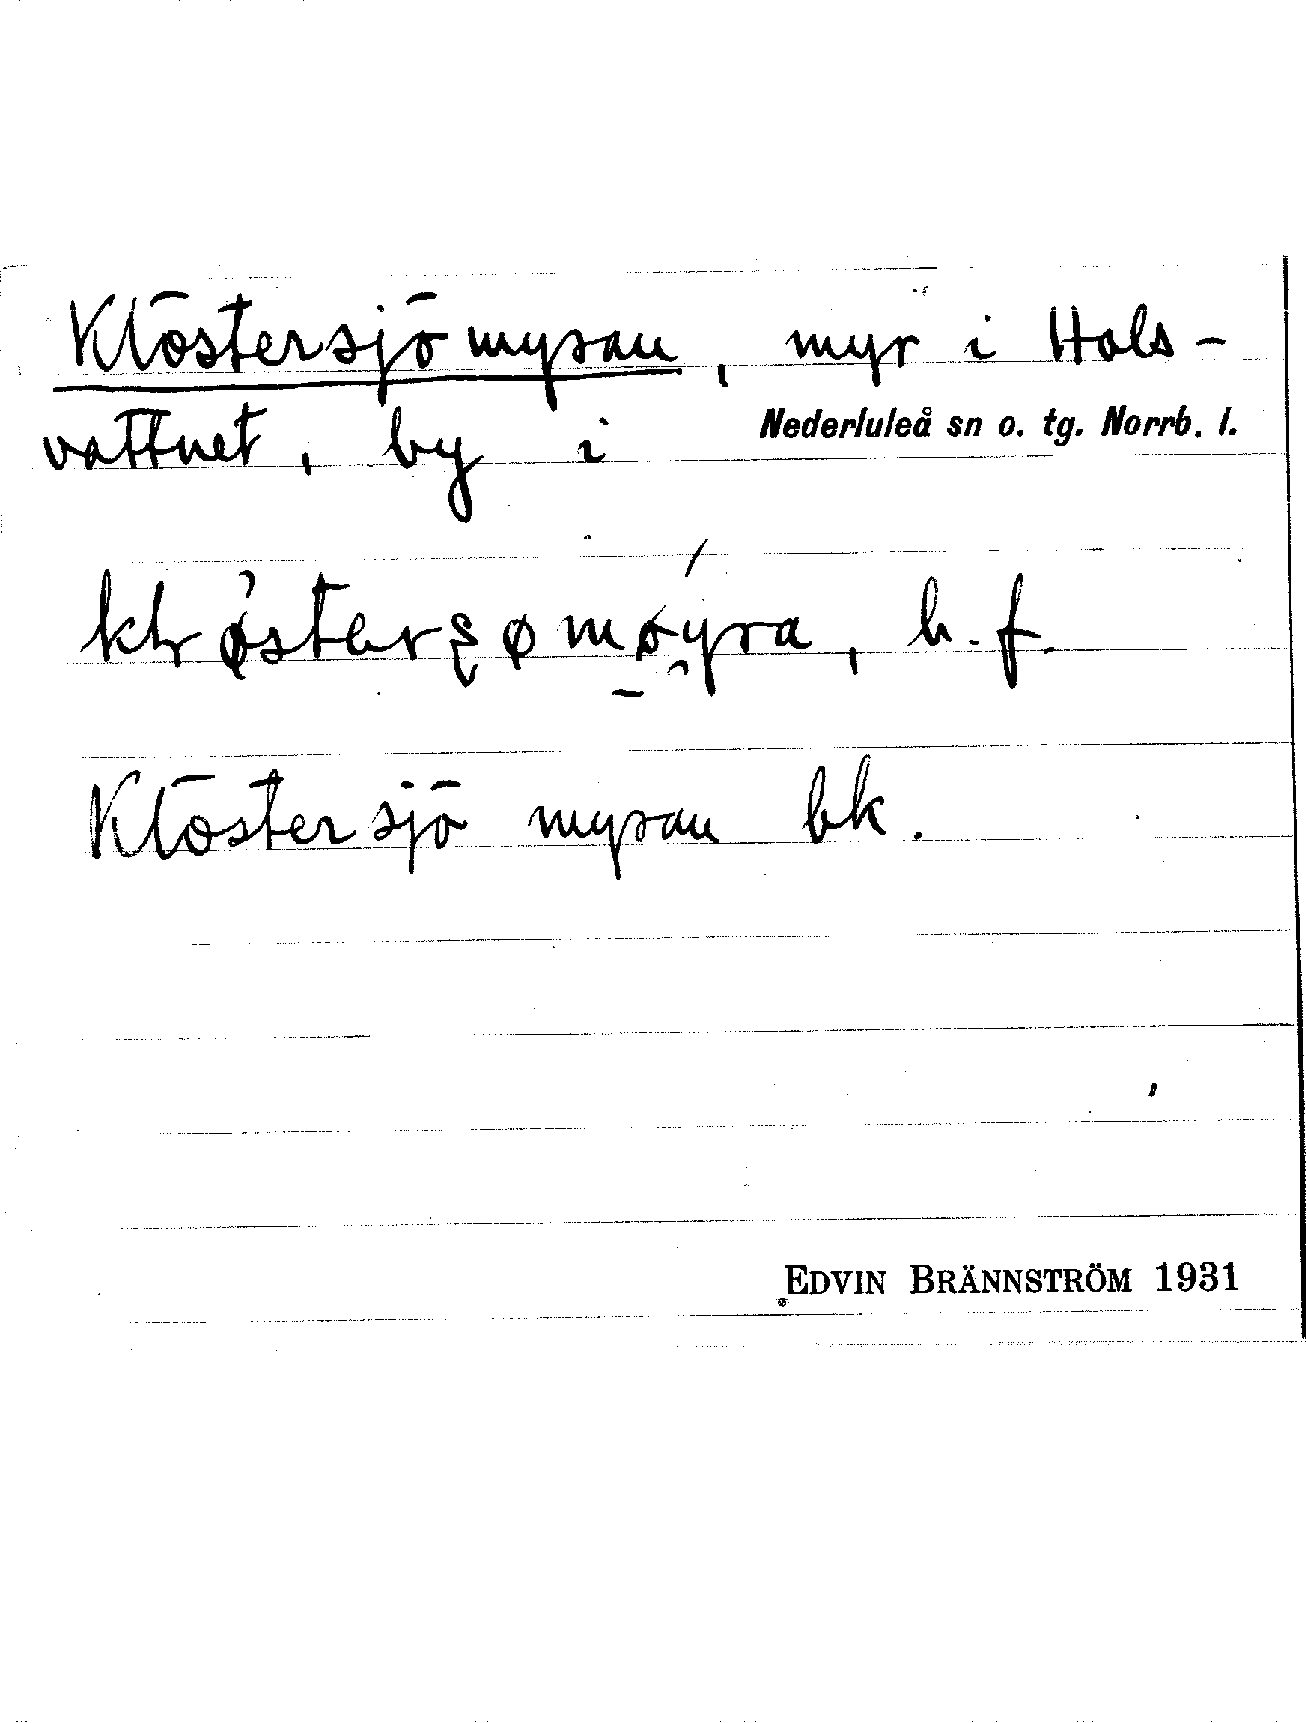 Klöstersjömyran, myr i Hals-
vattnet, by i Nederluleå sn o. tg. Norrb. l.
b. f.
Klöstersjö myran bk.
EDVIN BRÄNNSTRÖM 1931